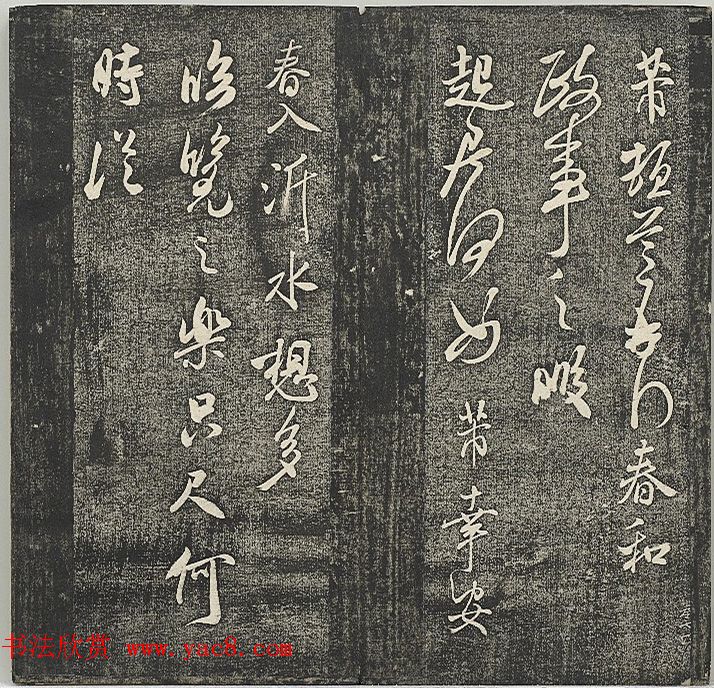 芾春和
政事之暇
起居何如 芾幸安
春入沂水想多
臨覽之樂只尺何
時從
书法欣赏 www.yac8.com